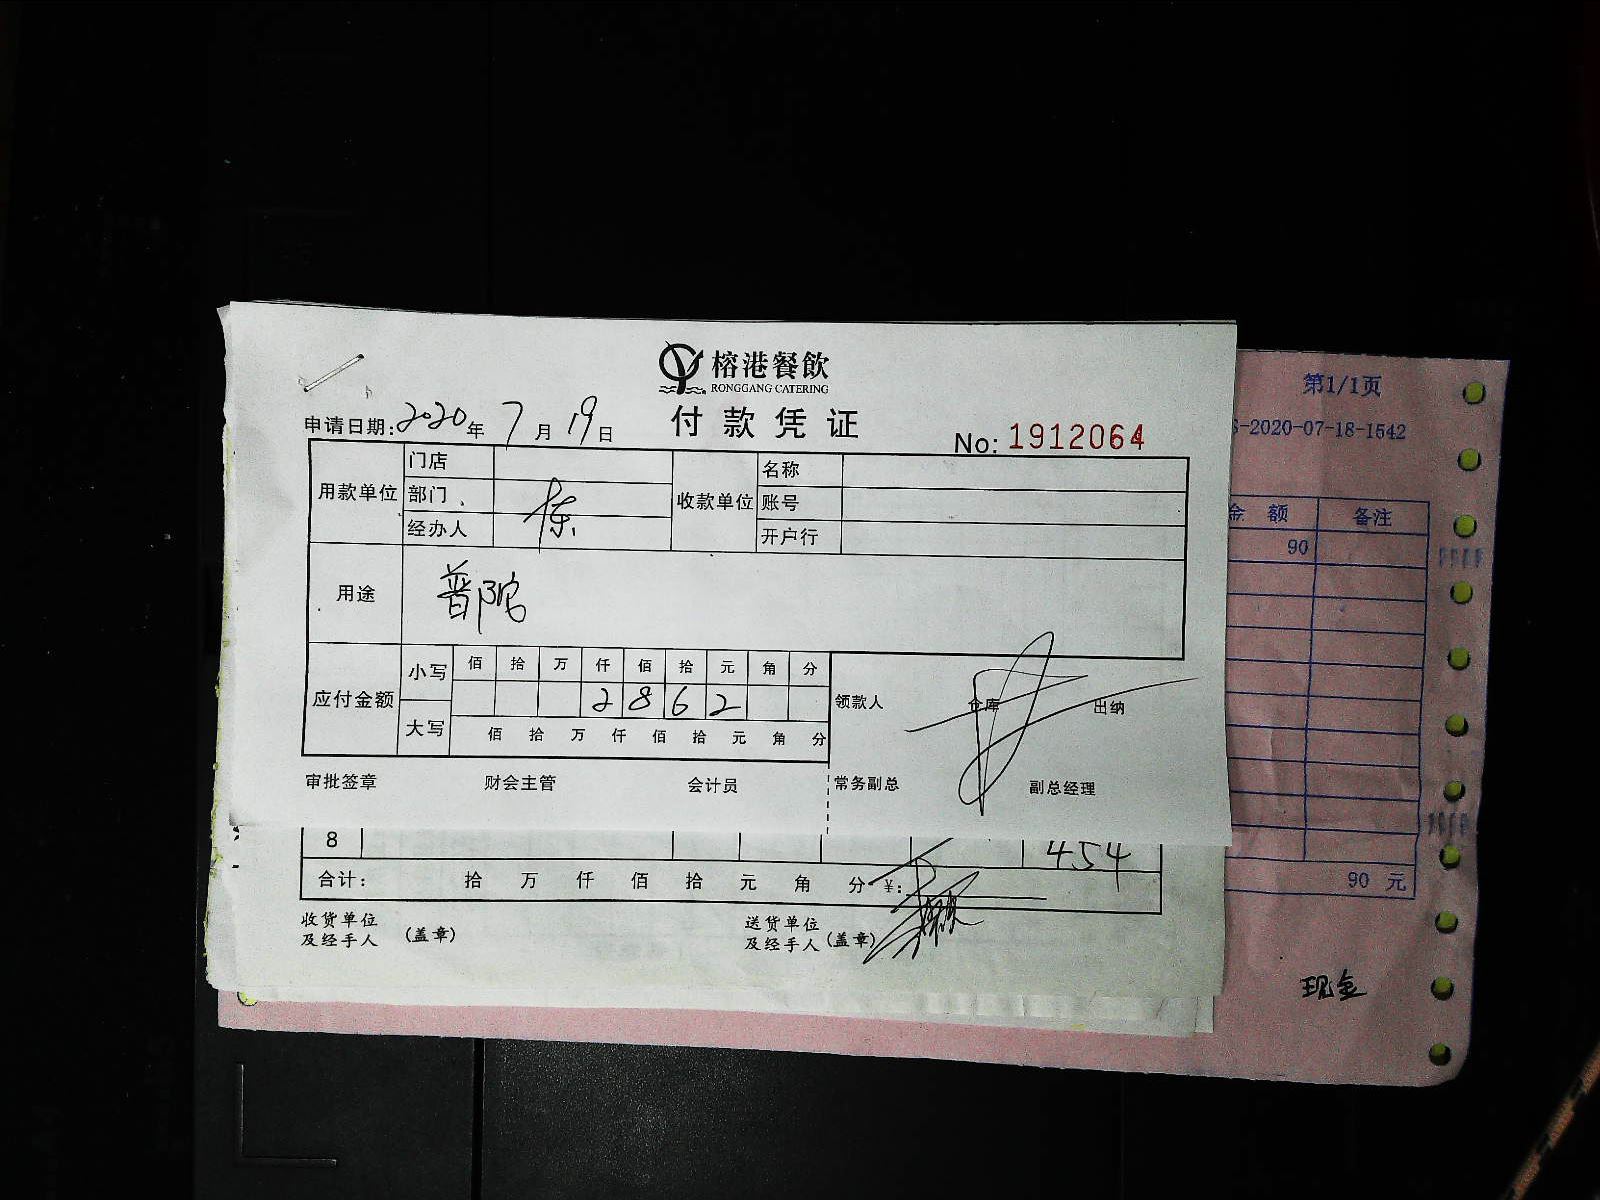 榕港餐飲
RONGGANG CATERING
付款凭证
申请日期:2020年7月19日
No: 1912064
用款单位 门店 收款单位 名称
部门 账号
经办人 开户行
用途 普陀
应付金额 小写 佰 拾 万 仟 佰 拾 元 角 分
2 8 6 2
领款人 仓库 出纳
大写 佰 拾 万 仟 佰 拾 元 角 分
审批签章 财会主管 会计员 常务副总 副总经理
8 454
合计: 拾 万 仟 佰 拾 元 角 分 ¥:
收货单位
及经手人 (盖章)
送货单位
及经手人 (盖章)
第1/1页
-2020-07-18-1542
金 额 备注
90
90 元
现金